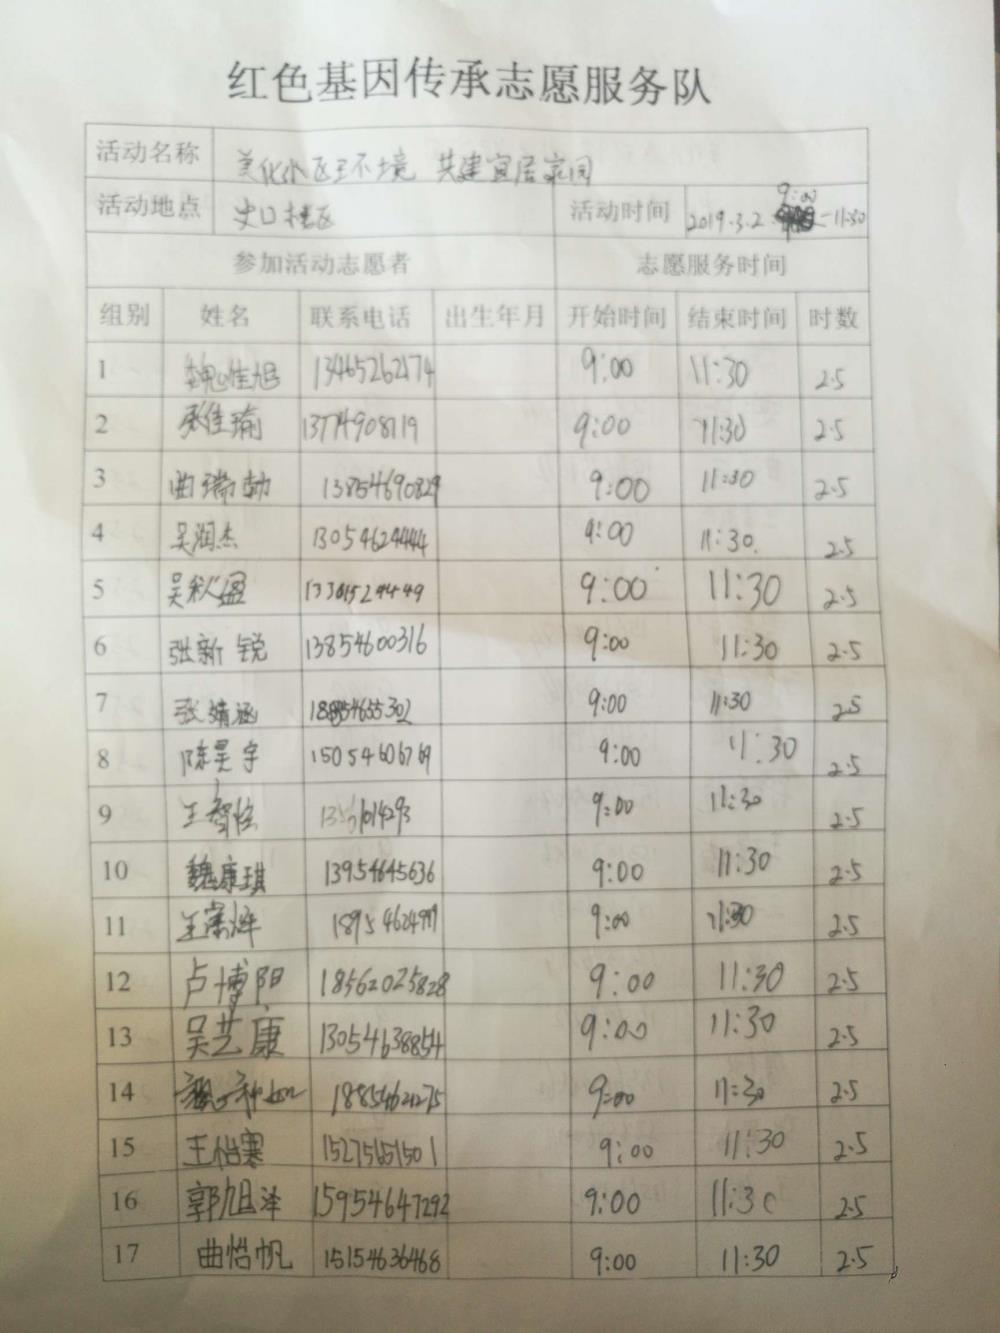 红色基因传承志愿服务队
活动名称 美化小区环境 共建宜居家园
活动地点 史口社区 活动时间 2019.3.2 9:00-11:30
参加活动志愿者 志愿服务时间
组别 姓名 联系电话 出生年月 开始时间 结束时间 时数
1 魏佳旭 13465262174 9:00 11:30 2.5
2 张佳瑜 9:00 11:30 2.5
3 曲瑞勃 13854690829 9:00 11:30 2.5
4 吴润杰 13054624444 9:00 11:30 2.5
5 吴秋盈 9:00 11:30 2.5
6 张新锐 13854600316 9:00 11:30 2.5
7 张婧涵 9:00 11:30 2.5
8 陈昊宇 15054606769 9:00 11:30 2.5
9 9:00 11:30 2.5
10 魏康琪 13954645636 9:00 11:30 2.5
11 9:00 11:30 2.5
12 卢博阳 18562025828 9:00 11:30 2.5
13 吴艺康 13054638854 9:00 11:30 2.5
14 9:00 11:30 2.5
15 王怡寒 15275651501 9:00 11:30 2.5
16 郭旭泽 15954647292 9:00 11:30 2.5
17 曲怡帆 15154636468 9:00 11:30 2.5